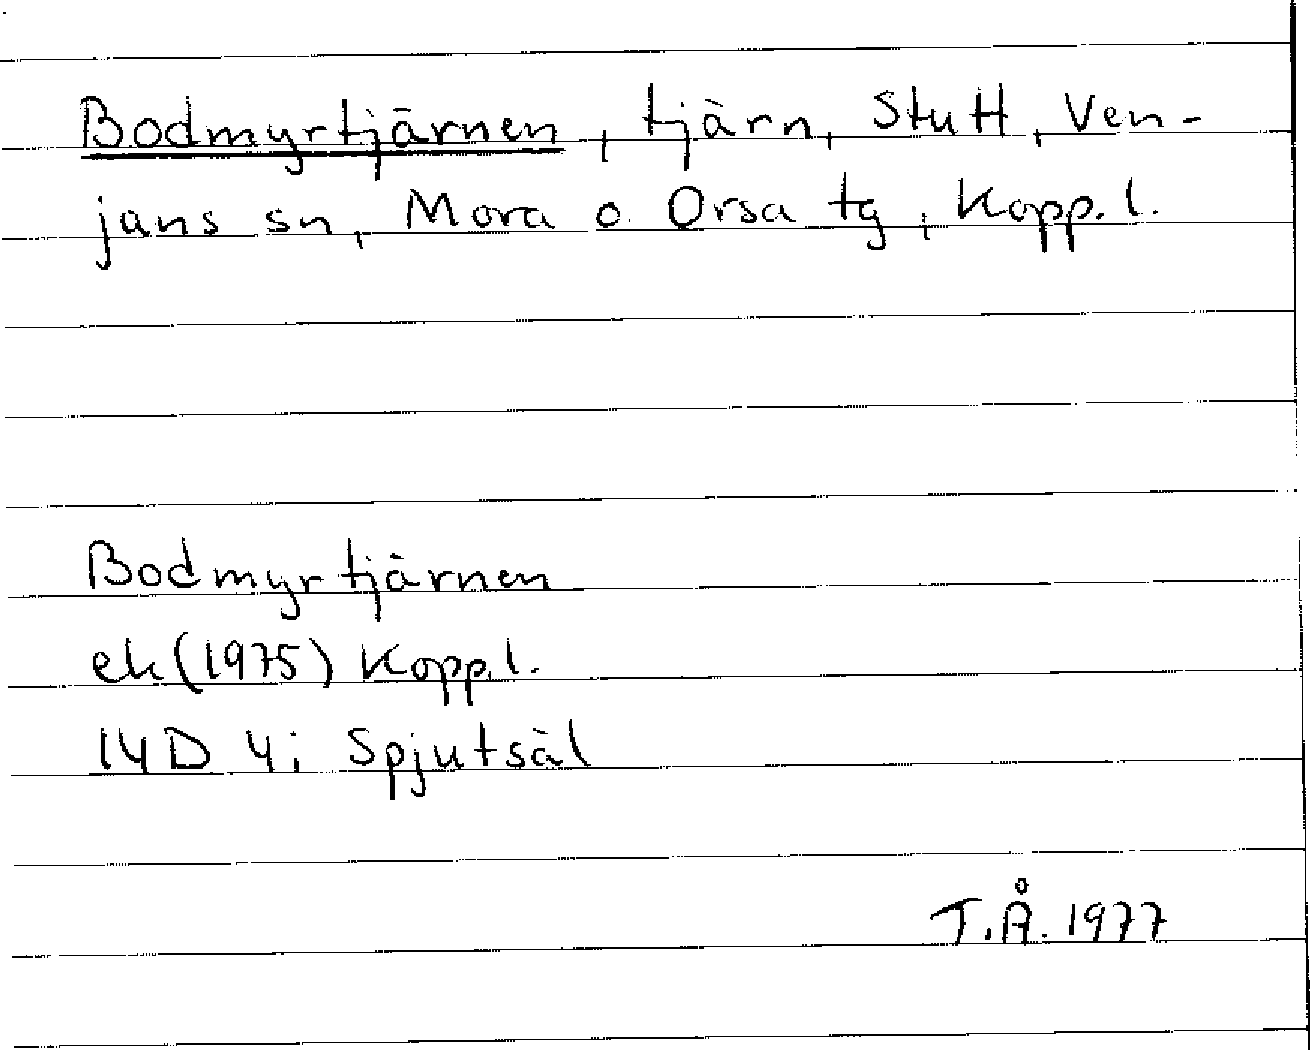 Bodmyrtjärnen, tjärn, Stutt, Ven-
jans sn, Mora o. Orsa tg, Kopp. l.
Bodmyrtjärnen
ek (1975) Kopp. l.
14D 4i Spjutsäl
T.Å. 1977